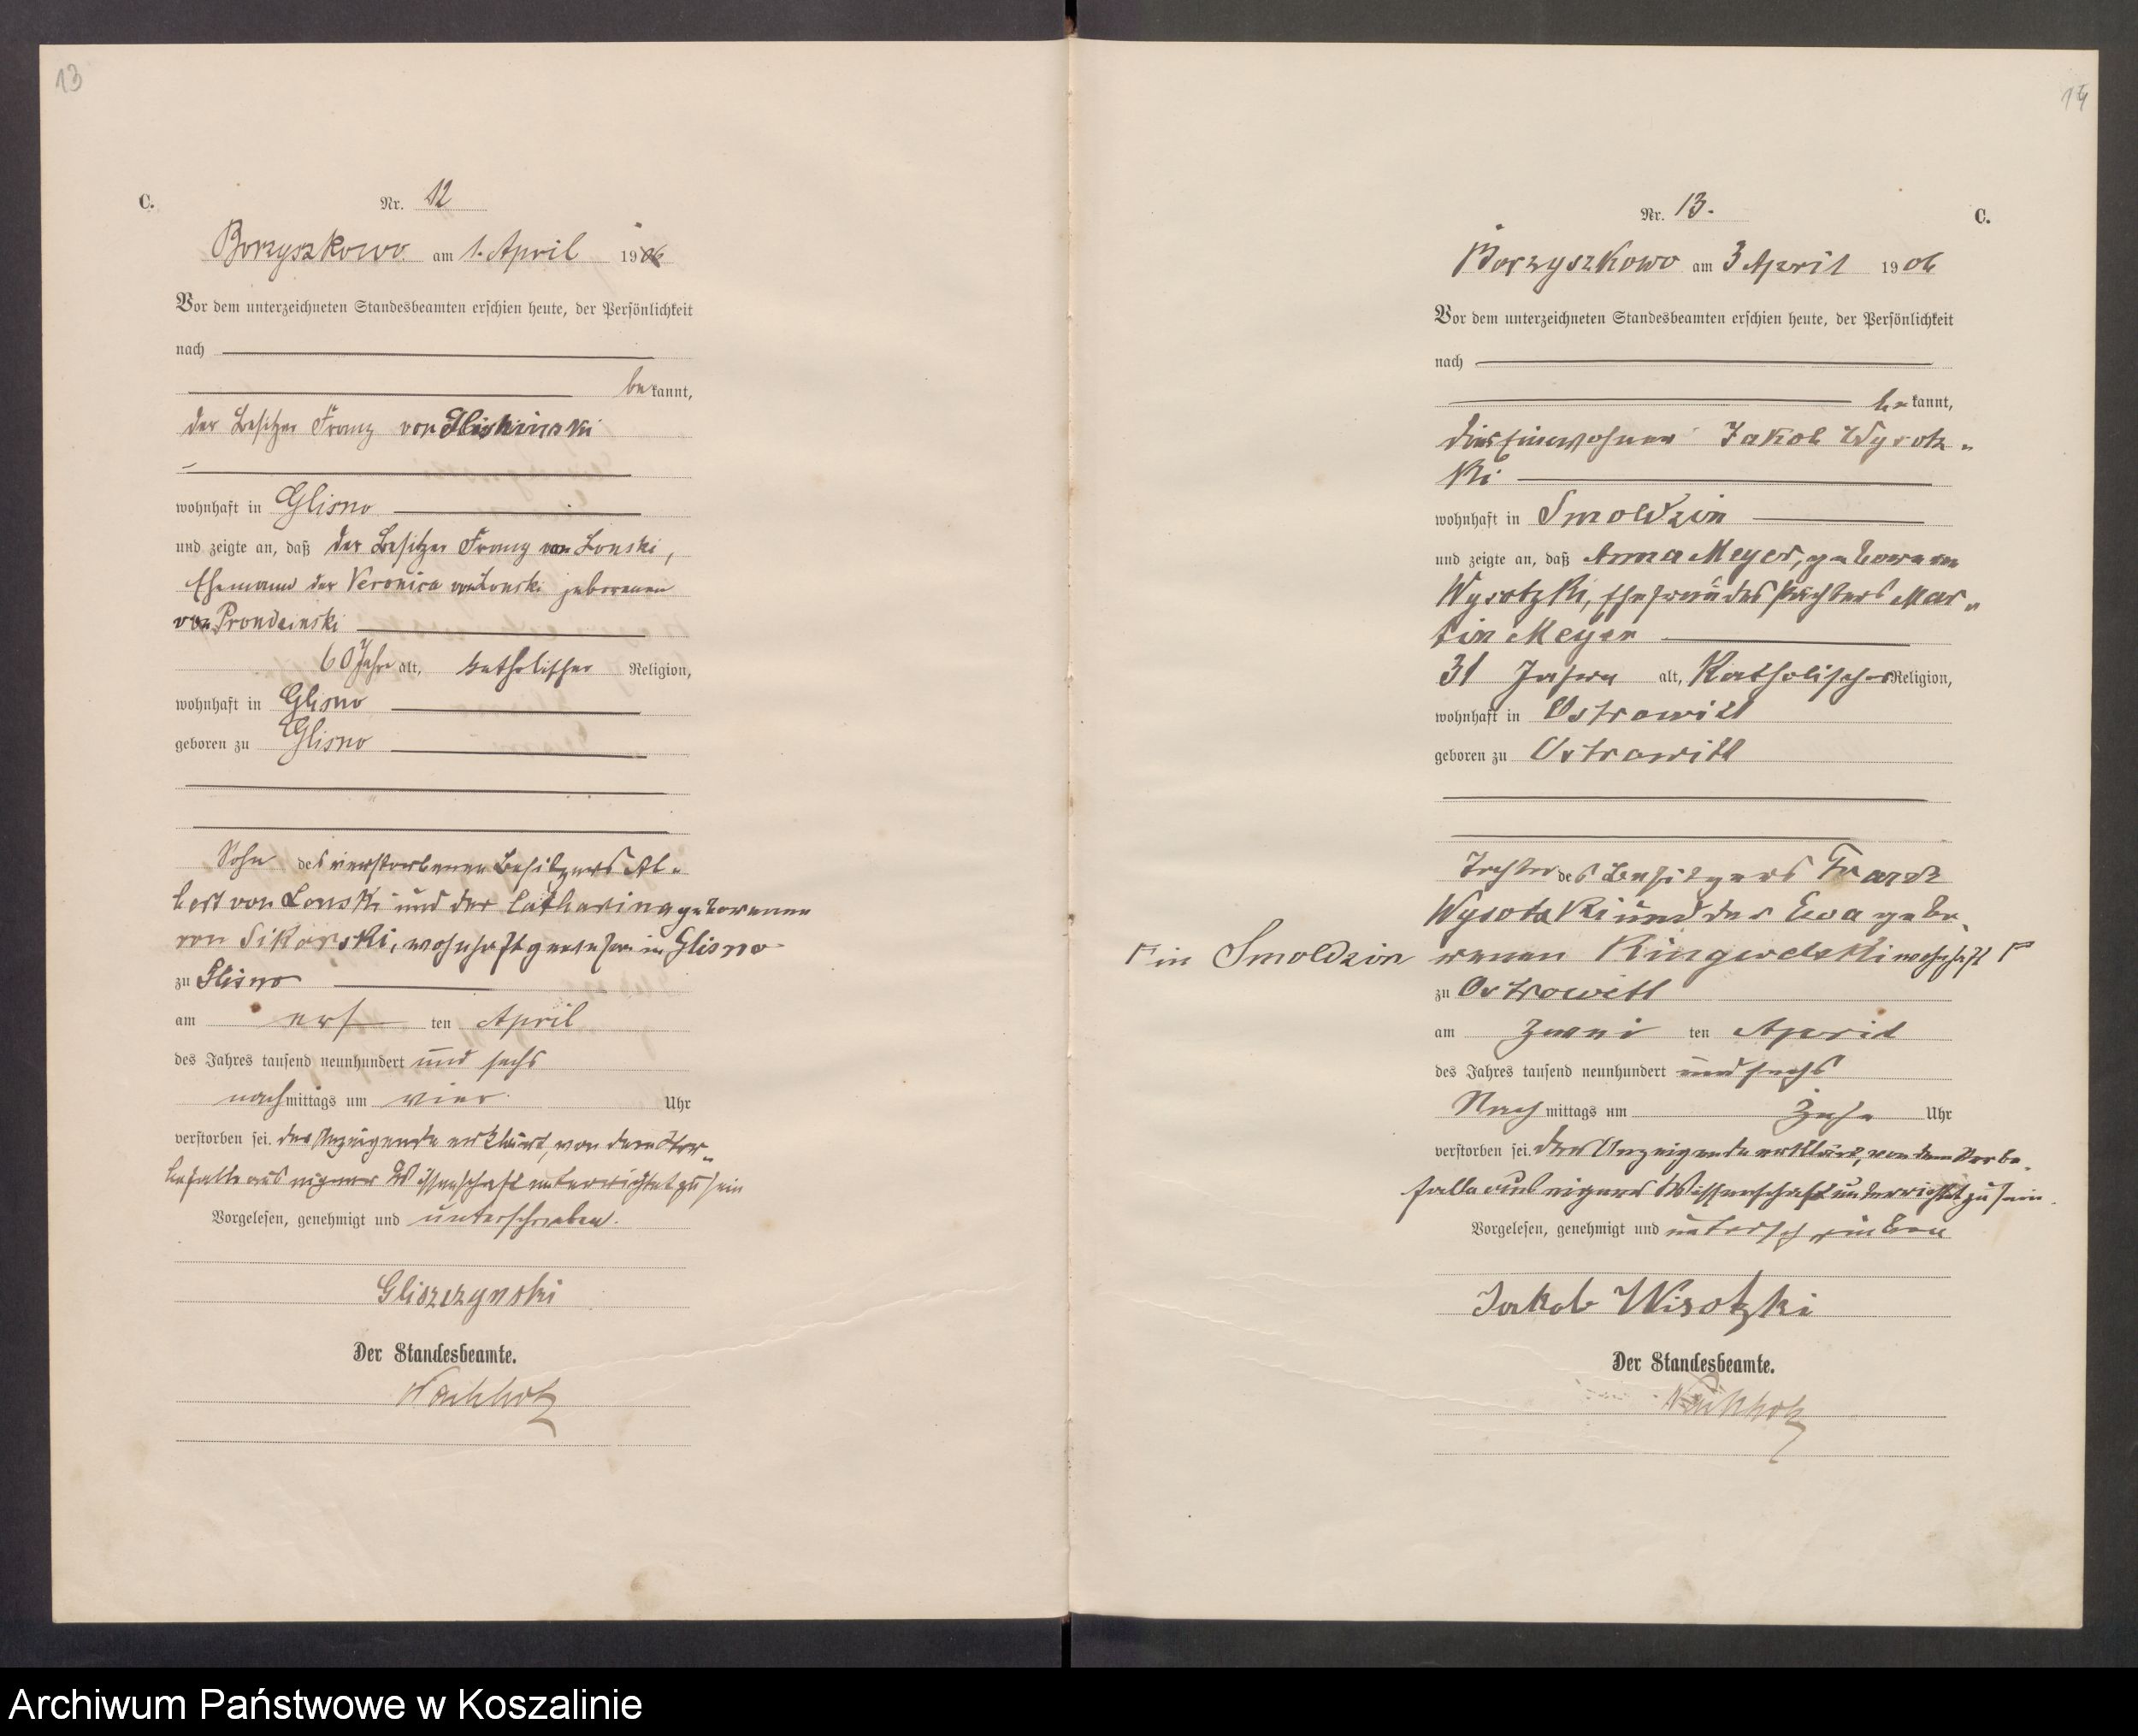 13
C.
Nr. 12
Borzyszkowo am 1. April 1906
Vor dem unterzeichneten Standesbeamten erschien heute, der Persönlichkeit
nach
bekannt,
der Besitzer Franz von
wohnhaft in Glisno
und zeigte an, daß der Besitzer Franz von Lonski,
Ehemann der Veronica von Lonski geborenen
von Prondzinski
60 Jahre alt, katholischer Religion,
wohnhaft in Glisno
geboren zu Glisno
Sohn des verstorbenen Besitzers Al-
bert von Lonski und der Catharina geborenen
von Sikorski, wohnhaft gewesen in Glisno
zu Glisno
am ersten April
des Jahres tausend neunhundert und sechs
nachmittags um vier Uhr
verstorben sei. Der Anzeigende erklärt, von dem Ster-
befalle aus eigener Wissenschaft unterrichtet zu sein
Vorgelesen, genehmigt und unterschrieben.
Gliszczynski
Der Standesbeamte.
Wachholz
14
Nr. 13.
C.
Borzyszkowo am 3 April 1906
Vor dem unterzeichneten Standesbeamten erschien heute, der Persönlichkeit
nach
bekannt,
Einwohner Jakob Wysotz-
ki
wohnhaft in Smoldzin
und zeigte an, daß Anna Meyer, geborenen
Wysotzki, Ehefrau des Pächters Mar-
tin Meyer
31 Jahre alt, Katholischer Religion,
wohnhaft in Ostrowitt
geboren zu Ostrowitt
Tochter des Besitzers Franz
Wysotzki und der Eva gebo-
renen wohnhaft ┌
┌ in Smoldzin
zu Ostrowitt
am zweiten April
des Jahres tausend neunhundert und sechs
Nachmittags um Zehn Uhr
verstorben sei. Der Anzeigende erklärt, von dem Sterbe-
falle aus eigener Wissenschaft unterrichtet zu sein.
Vorgelesen, genehmigt und unterschrieben
Jakob Wisotzki
Der Standesbeamte.
Wachholz
Archiwum Państwowe w Koszalinie